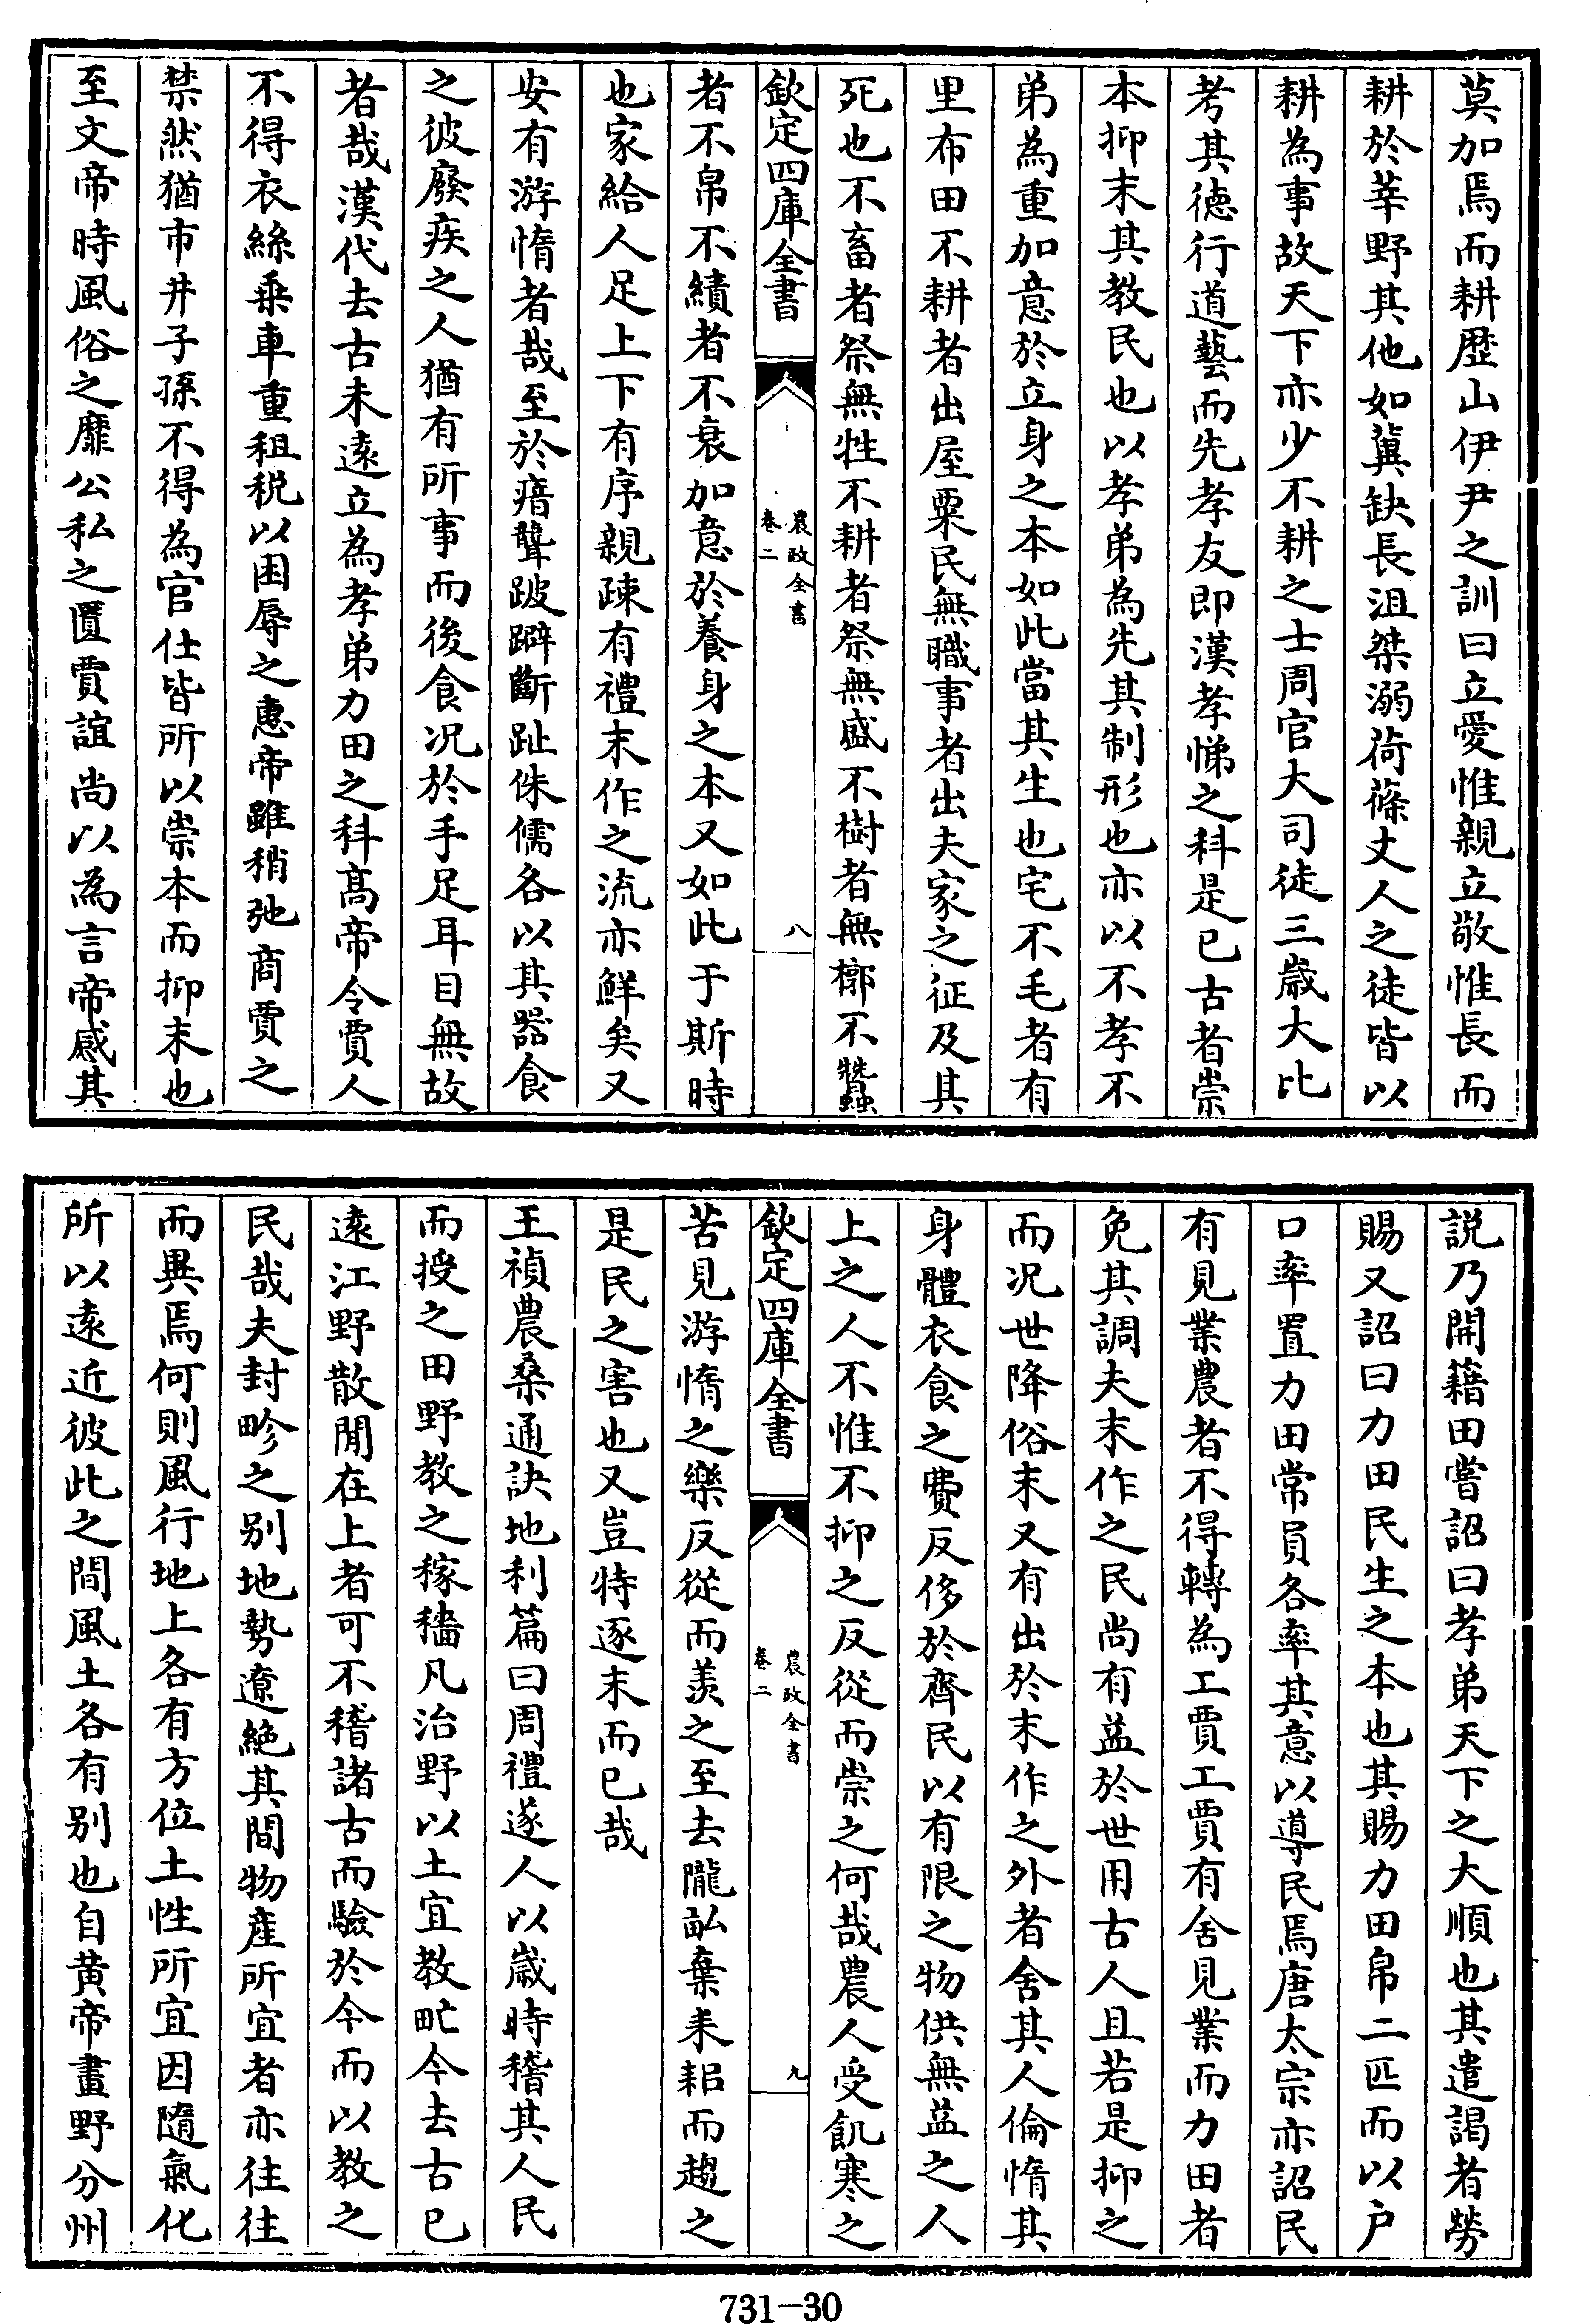 莫加焉而耕歴山伊尹之訓曰立愛惟親立敬惟長而
耕於莘野其他如冀缺長沮桀溺荷蓧丈人之徒皆以
耕為事故天下亦少不耕之士周官大司徒三歲大比
考其徳行道藝而先孝友即漢孝悌之科是已古者崇
本抑末其教民也以孝弟為先其制形也亦以不孝不
弟為重加意於立身之本如此當其生也宅不毛者有
里布田不耕者出屋粟民無職事者出夫家之征及其
死也不畜者祭無牲不耕者祭無盛不樹者無槨不蠶
欽定四庫全書
農政全書
卷二
八
者不帛不績者不衰加意於養身之本又如此于斯時
也家給人足上下有序親疎有禮末作之流亦鮮矣又
安有游惰者哉至於瘖聾跛躃斷趾侏儒各以其器食
之彼廢疾之人猶有所事而後食况於手足耳目無故
者哉漢代去古未逺立為孝弟力田之科髙帝令賈人
不得衣絲乘車重租税以困辱之惠帝雖稍弛商賈之
禁然猶市井子孫不得為官仕皆所以崇本而抑末也
至文帝時風俗之靡公私之匱賈誼尚以為言帝感其
説乃開籍田嘗詔曰孝弟天下之大順也其遣謁者勞
賜又詔曰力田民生之本也其賜力田帛二匹而以户
口率置力田常員各率其意以導民焉唐太宗亦詔民
有見業農者不得轉為工賈工賈有舍見業而力田者
免其調夫末作之民尚有益於世用古人且若是抑之
而况世降俗末又有出於末作之外者舍其人倫惰其
身體衣食之費反侈於齊民以有限之物供無益之人
上之人不惟不抑之反從而崇之何哉農人受飢寒之
欽定四庫全書
農政全書
卷二
九
苦見游惰之樂反從而羡之至去隴畝棄耒耜而趨之
是民之害也又豈特逐末而已哉
王禎農桑通訣地利篇曰周禮遂人以歲時稽其人民
而授之田野教之稼穡凡治野以土宜教甿今去古已
逺江野散閒在上者可不稽諸古而驗於今而以教之
民哉夫封畛之别地勢遼絶其間物産所宜者亦往往
而異焉何則風行地上各有方位土性所宜因隨氣化
所以逺近彼此之間風土各有别也自黄帝畫野分州
731—30